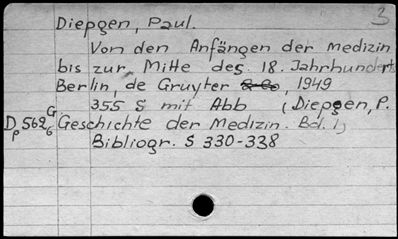 3
Diepgen, Paul.
Von den Anfängen der Medizin
bis zur Mitte des 18. Jahrhunderts
Berlin, de Gruyter & Co, 1949
355 S mit Abb (Diepgen, P.
Dp 562 G6 Geschichte der Medizin. Bd. 1)
Bibliogr. S 330-338